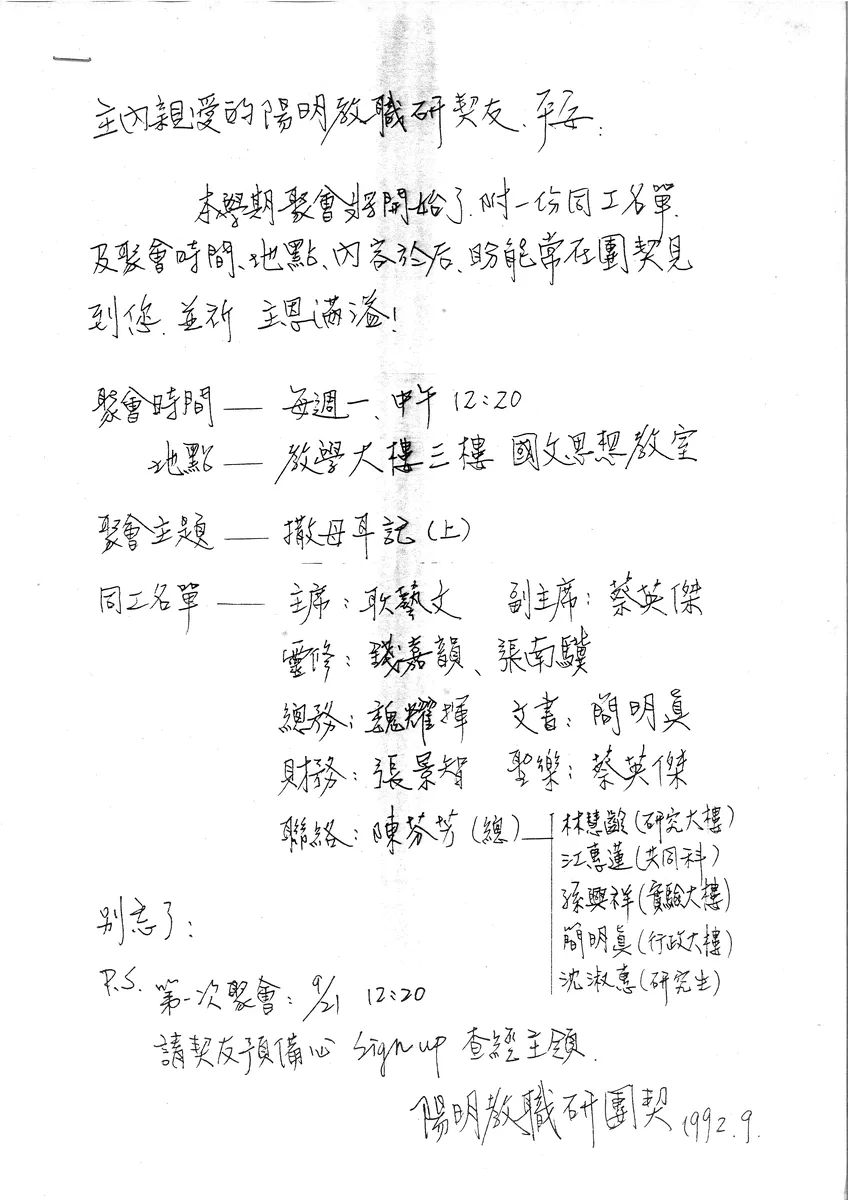 主內親愛的陽明教職研契友、平安:
本學期聚會將開始了.附一份同工名單.
及聚會時間、地點、內容於后、盼能常在團契見
到您.並祈 主恩滿溢!
聚會時間 — 每週一、中午 12:20
地點 — 教學大樓三樓 國文思想教室
聚會主題 — 撒母耳記(上)
同工名單 — 主席:耿藝文 副主席:蔡英傑
靈修:錢嘉韻、張南驥
總務:魏耀揮 文書:簡明真
財務:張景智 聖樂:蔡英傑
聯絡:陳芬芳(總)
林慧齡(研究大樓)
江惠蓮(共同科)
孫興祥(實驗大樓)
簡明真(行政大樓)
沈淑惠(研究生)
別忘了:
P.S. 第一次聚會:9/21 12:20
請契友預備心 Sign up 查經主題.
陽明教職研團契 1992.9.